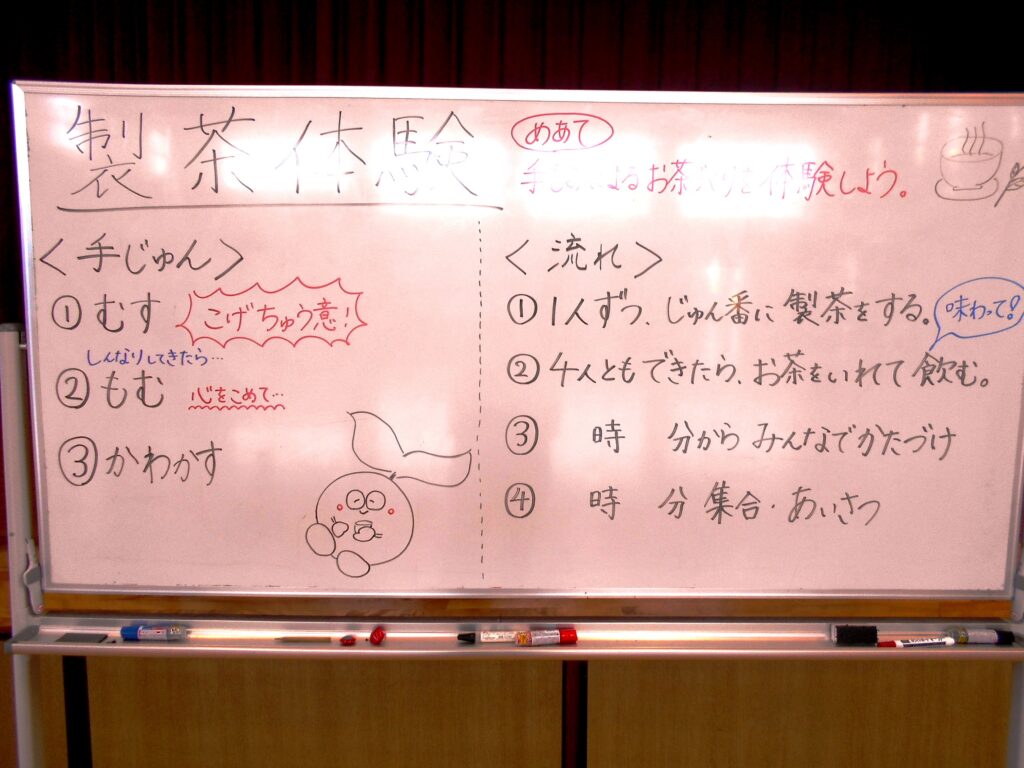 製茶体験
めあて
手もみによるお茶づくりを体験しよう。
<手じゅん>
①むす
こげちゅう意!
しんなりしてきたら…
②もむ
心をこめて…
③かわかす
<流れ>
①1人ずつ、じゅん番に製茶をする。
味わって!
②4人ともできたら、お茶をいれて飲む。
③ 時 分からみんなでかたづけ
④ 時 分 集合・あいさつ